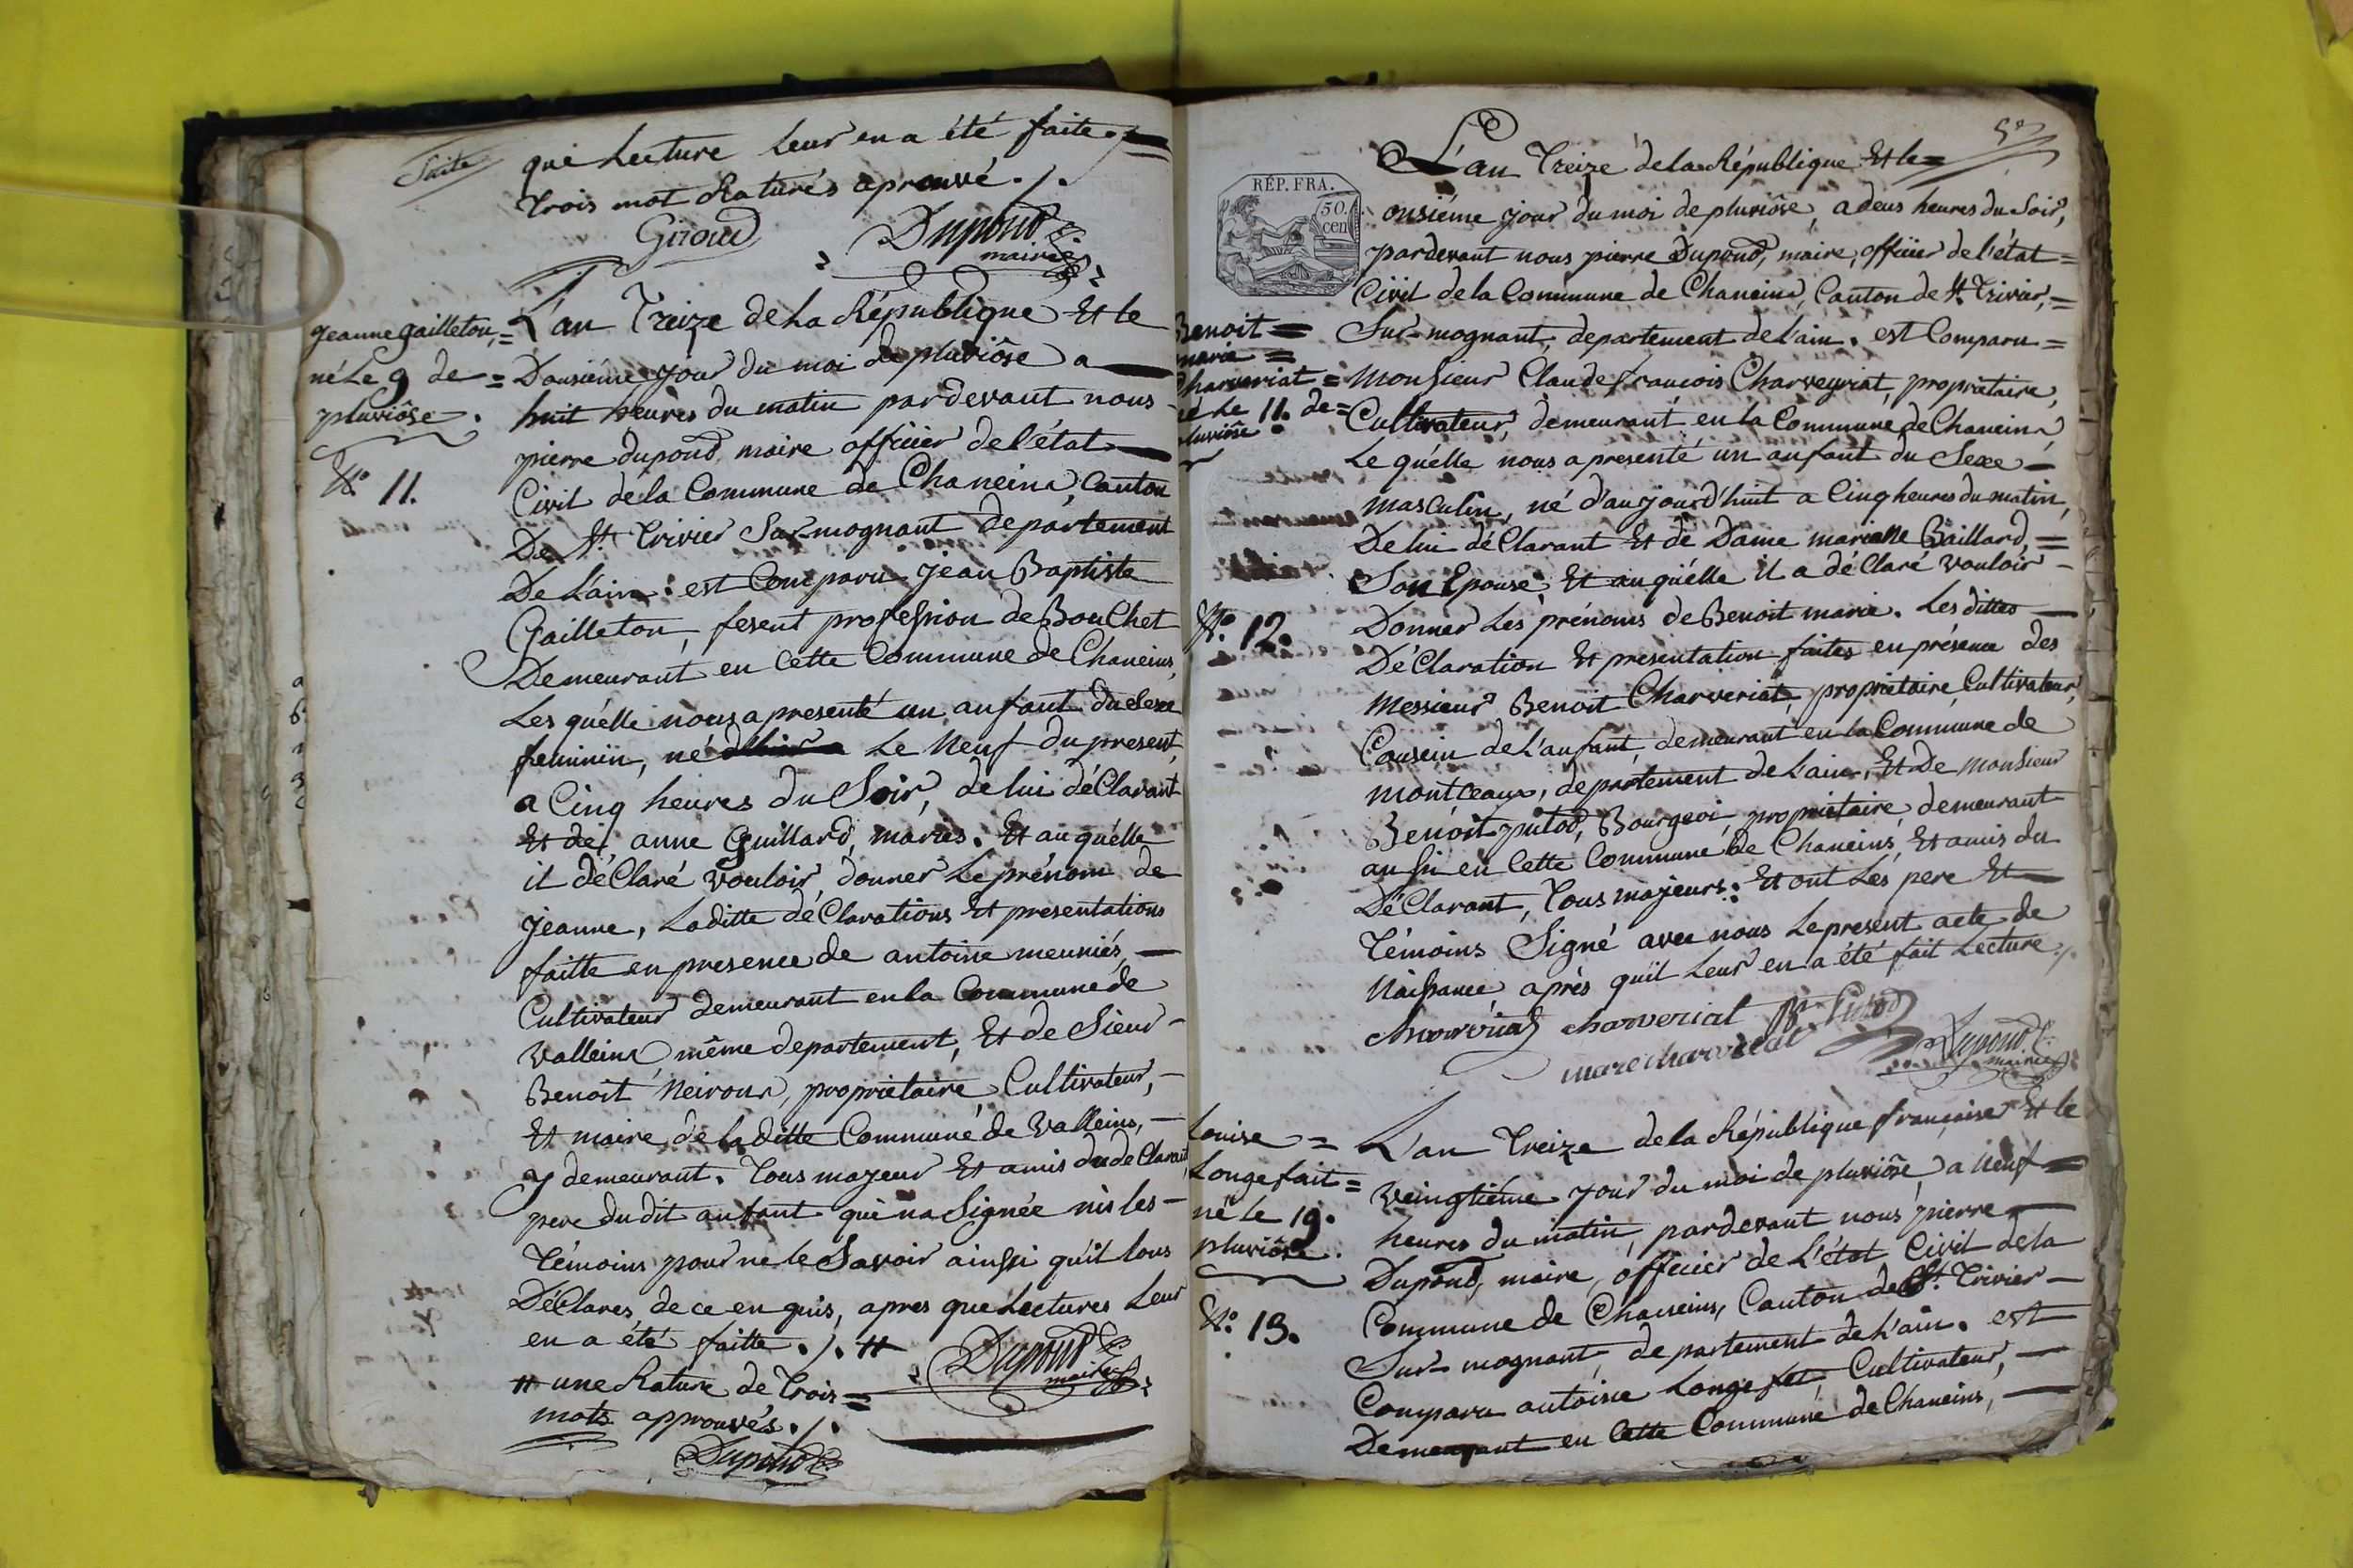 Suite
que Lecture Leur en a été faite./.
trois mot Raturés aprouvé./.
Giroud
Dupond
maire
jeanne gailleton,=
né Le 9 de =
pluviôse.
N.º 11.
L'an Treize de La République Et le
Dousiéme jour du moi de pluviôse a
huit heures du matin pardevant nous
pierre dupond, maire officier de l'état
Civil de la Commune de Chaneins, Canton
De St. Trivier Sur-mognant departement
De L'ain: est Comparu jean Baptiste
Gailleton, fesent profession de BouChet
Demeurant en Cette Commune de Chaneins,
Les quélle nous a presenté un anfant du Sexe
feminin, né Le Neuf du present,
a Cinq heures du Soir, de lui déClarant
Et de anne Guillard, maries. Et au quélle
il déClaré vouloir donner Le prénom de
Jeanne, Laditte déClarations Et presentations
faitte en presence de antoine meuniés,
Cultivateur demeurant en la Commune de
valleins même departement, Et de Sieur
Benoit Neirous, propriétaire Cultivateur,
Et maire de laditte Commune de valleins,
y demeurant. Tous majeur Et amis dudeClarant,
pere dudit anfant qui na Signée nis les
Témoins pour ne le Savoir ainssi qu'il tous
DéClares de ce en quis, apres que Lectures Leur
en a été faitte./. #
# une Rature de Trois =
mots approuvés./.
Dupond
maire
Dupond
5e
RÉP. FRA.
50.
cen
L'an Treize de la République Et le =
onsiéme jour du moi de pluviôse, a deus heures du Soir,
pardevant nous pierre Dupond, maire, officier de l'état =
Civil de la Commune de Chaneins, Canton de St. Trivier, =
Sur-mognant, departement de L'ain. est Comparu =
Monsieur Claude françois Charveyriat, propriétaire,
Cultivateur, demeurant en la Commune de Chaneins,
Le quélle nous a presenté un anfant du Sexe =
masculin, né d'aujourd'huit a Cinq heures du matin,
De lui déClarant Et de Dame marianne Baillard, =
Son Epouse, Et au quélle il a déClaré vouloir
Donner Les prénoms de Benoit marie. Les dittes
DéClaration Et presentation faites en présence des
Messieur Benoit Charveriat, propriétaire, Cultivateur,
Cousein de L'anfant, demeurant en la Commune de
montceaux, departement de L'ain, Et de Monsieur
Benoit putod, Bourgeoi, propriétaire, demeurant
aussi en Cette Commune de Chaneins, Et amis du
DéClarant, Tous majeurs: Et ont Les pere Et
Témoins Signé avec nous Le present acte de
Naissance, aprés qu'il Leur en a été fait Lecture./.
Benoit =
marie =
Charveriat =
né Le 11. de =
pluviôse.
N.º 12.
charveriat charveriat Bn Putod
marc charveriat
Dupond
maire
Louise =
Longefait =
né le 19.
pluviôse.
N.º 13.
L'an Treize de la République française Et le
veingtiéme jour du moi de pluviôse, a Neuf =
heures du matin, pardevant nous pierre
Dupond, maire, officier de L'état Civil de la
Commune de Chaneins, Canton de St. Trivier
Sur-mognant, departement de L'ain. est
Comparu antoine Longefet, Cultivateur,
Demeurant en Cette Commune de Chaneins,